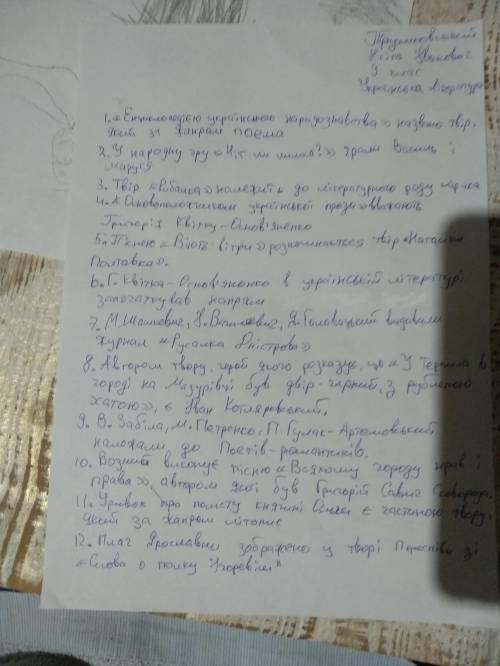 Микита Іванович
9 клас
Українська література
1. «Енциклопедією українського народознавства» назвено твір,
який за жанром поема
2. У народну гру «Чіт чи лишка?» грали Василь і
Маруся
3. Твір «Рибалка» належить до літературного роду лірика
4. «Основоположником української прози» вважають
Григорія Квітку-Основ'яненко
5. Піснею «Віють вітри» розпочинається твір «Наталка
Полтавка».
6. Г. Квітка-Основ'яненко в українській літературі
започаткував напрям
7. М. Шашкевич, І. Вагилевич, Я. Головацький видавали
журнал «Русалка Дністрова»
8. Автором твору, герой якого розказує, що «У Терпила в
городі на Мазурівці був двір-чорний, з рубленою
хатою», є Іван Котляревський.
9. В. Забіла, М. Петренко, П. Гулак-Артемовський
належали до Поетів-романтиків.
10. Возний виконує пісню «Всякому городу нрав і
права», автором якої був Григорій Савич Сковорода.
11. Уривок про помсту княгині Ольги є частиною твору,
який за жанром літопис
12. Плач Ярославни зображено у творі Переспіви зі
«Слова о полку Ігоревім"